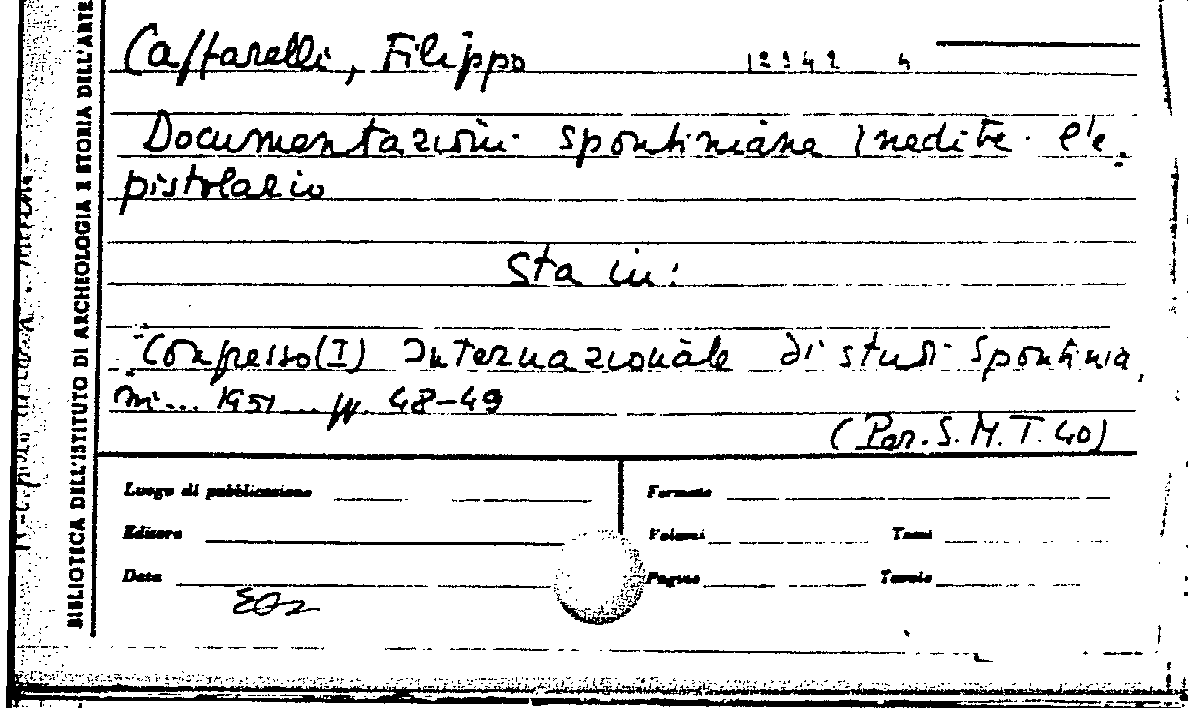 BIBLIOTECA DELL'ISTITUTO DI ARCHEOLOGIA E STORIA DELL'ARTE
Caffarelli, Filippo 12342 4
Documentazioni spontiniane inedite. L'e-
pistolario
Sta in:
Congresso (I) Internazionale di studi Spontinia-
ni... 1951... pp. 48-49
(Par. S. M. T. 40)
Luogo di pubblicazione
Formato
Editore
Volumi Tomi
Data
Pagine Tavole